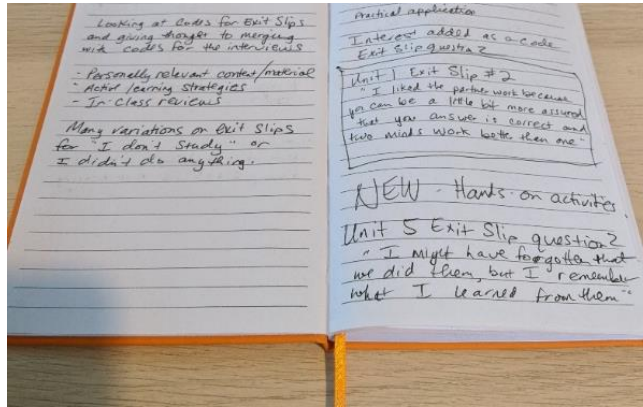 Looking at Codes for Exit Slips
and giving thought to merging
with codes for the interviews
- Personally relevant content/material
- Active learning strategies
- In-class reviews
Many variations on exit slips
for "I don't study" or
I didn't do anything.
Practical application
Interest added as a code
Exit Slip question 2
Unit 1 Exit Slip #2
"I liked the partner work because
you can be a little bit more assured
that you answer is correct and
two minds work better than one"
NEW - Hands-on activities
Unit 5 Exit Slip question 2
"I might have forgotten that
we did them, but I remember
what I learned from them"